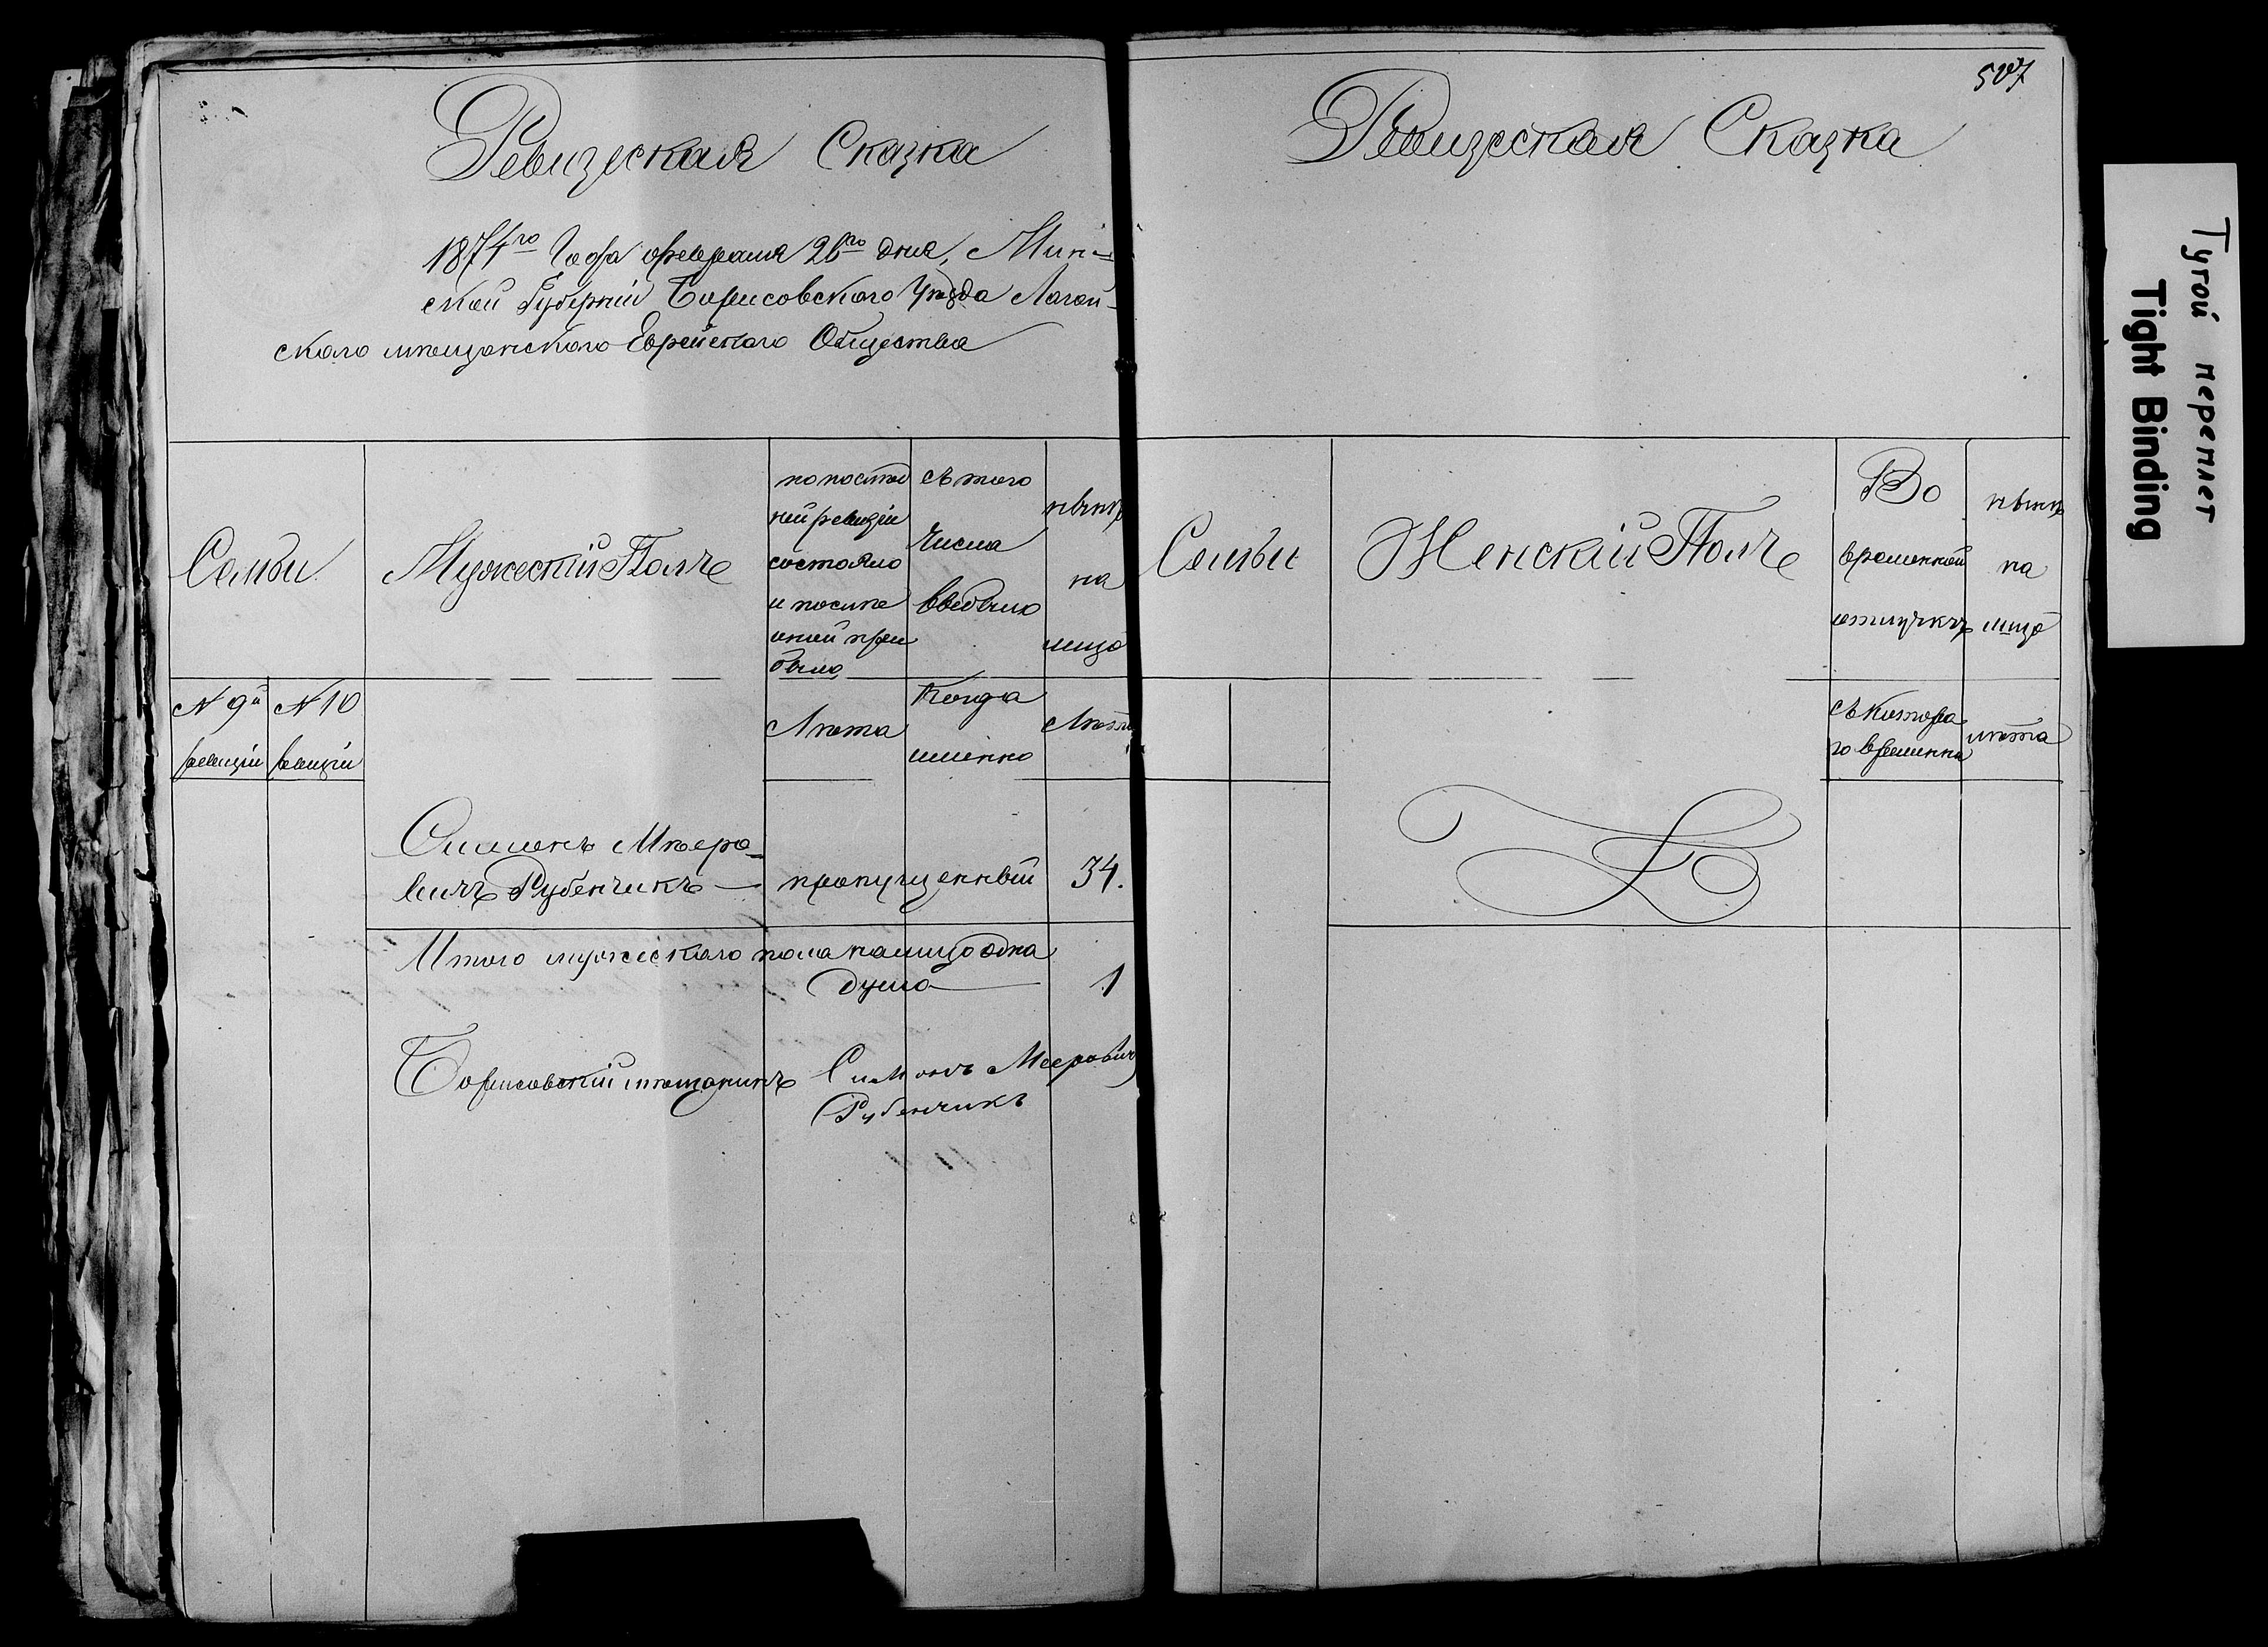 507
Ревизская Сказка
1874го Года февраля 26го дня, Мин-
ской Губерніи Борисовского Уѣзда Логой-
ского мѣщанского Еврейского Общества
Семьи
Мужескій Полъ
по послѣд
ней ревизіи
состояло
и после
оной при
было
Съ того
числа
выбыло
нынѣ
на
лицо
№ 9й
ревизіи
№ 10
ревизіи
Лѣта
Когда
именно
Лѣта
Симонъ Мѣеро-
вичъ Рубенчикъ — пропущенный 34.
Итого мужескаго пола налицо одна
душа 1
Борисовскій мѣщанинъ Симонъ Мееровичъ
Рубенчикъ
Ревизская Сказка
Семьи
Женскій Полъ
Во
временной
отлучкѣ
нынѣ
на
лицо
Съ котора
го времени
лѣта
Тугой переплет
Tight Binding